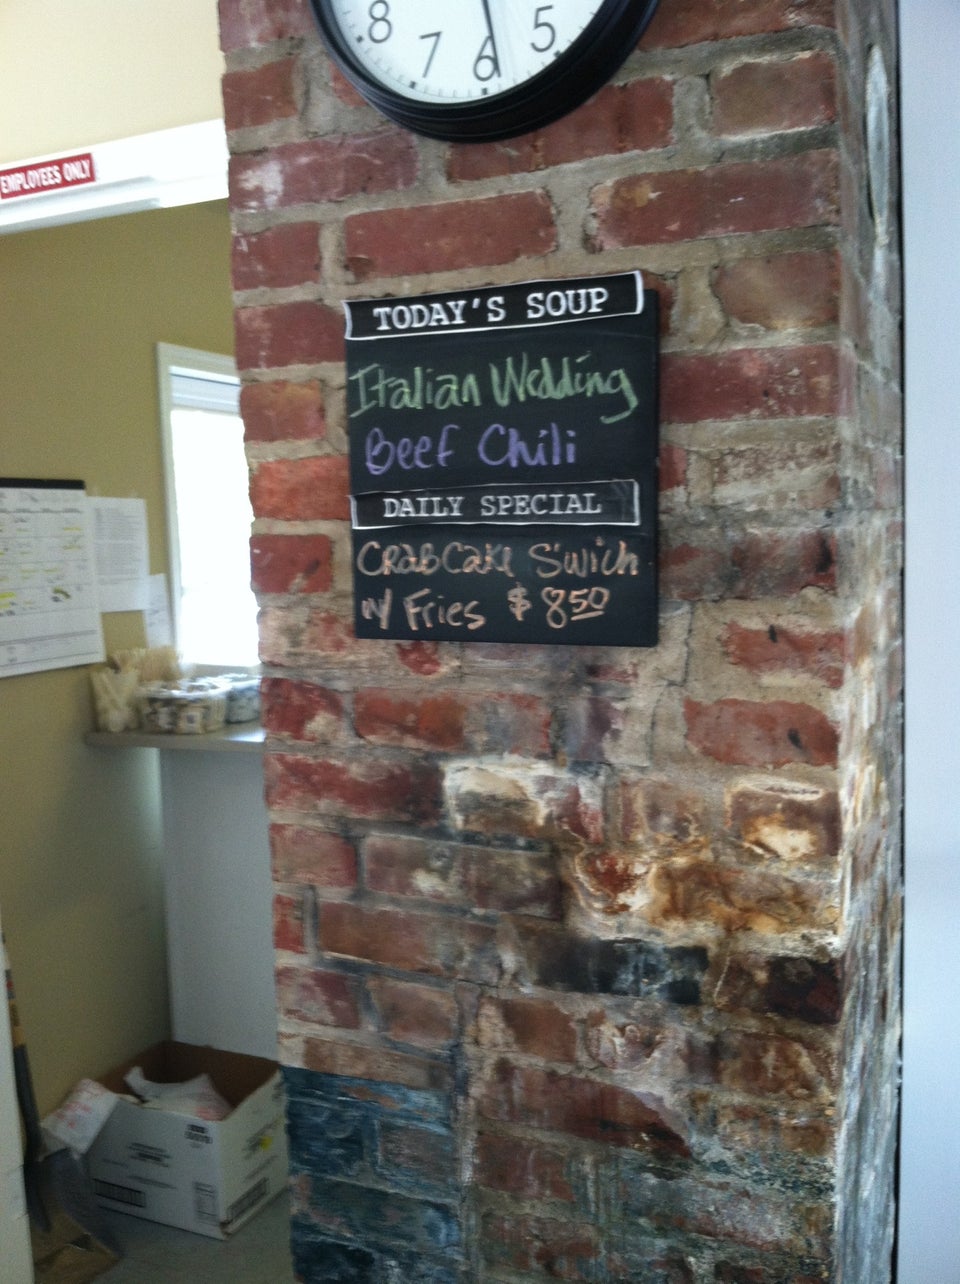 8 7 6 5
EMPLOYEES ONLY
TODAY'S SOUP
Italian Wedding
Beef Chili
DAILY SPECIAL
CRABCAKE S'wich
w/ Fries $ 8 50